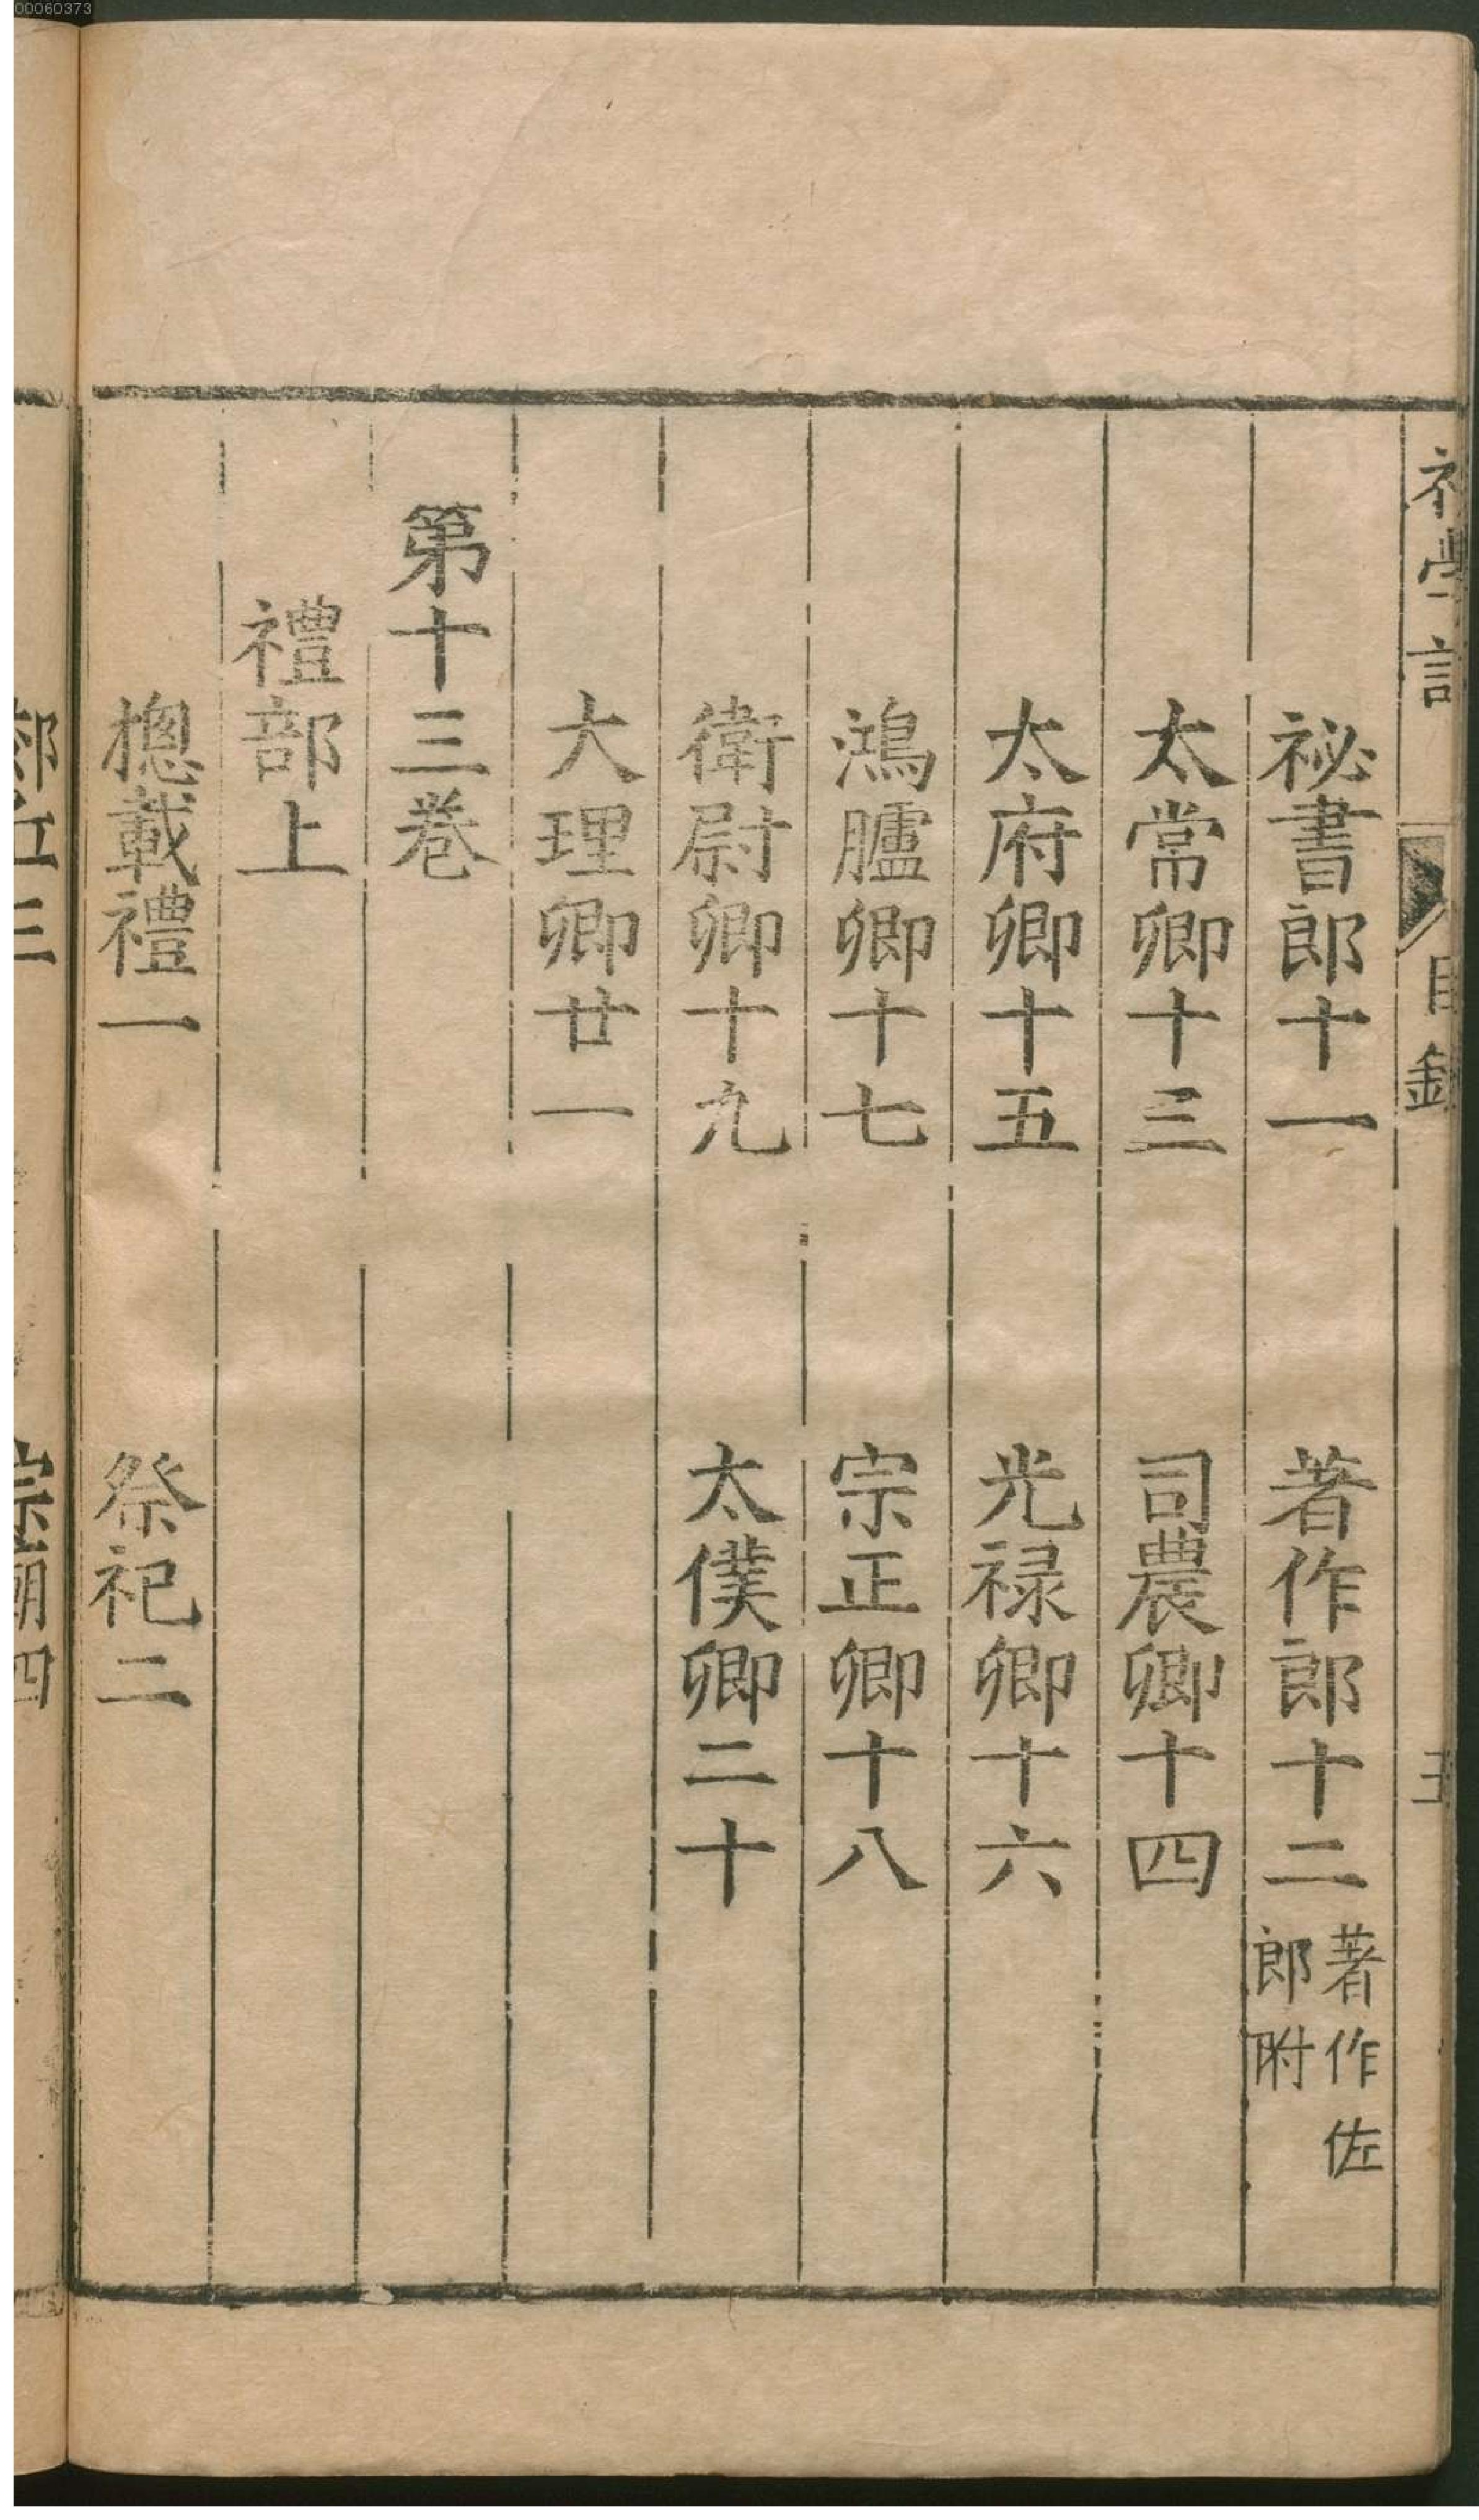 00060373
初學記
目録
五
祕書郎十一　著作郎十二　著作佐郎附
太常卿十三　司農卿十四
太府卿十五　光禄卿十六
鴻臚卿十七　宗正卿十八
衛尉卿十九　太僕卿二十
大理卿廿一
第十三卷
禮部上
摠載禮一　祭祀二
郊丘三　宗廟四